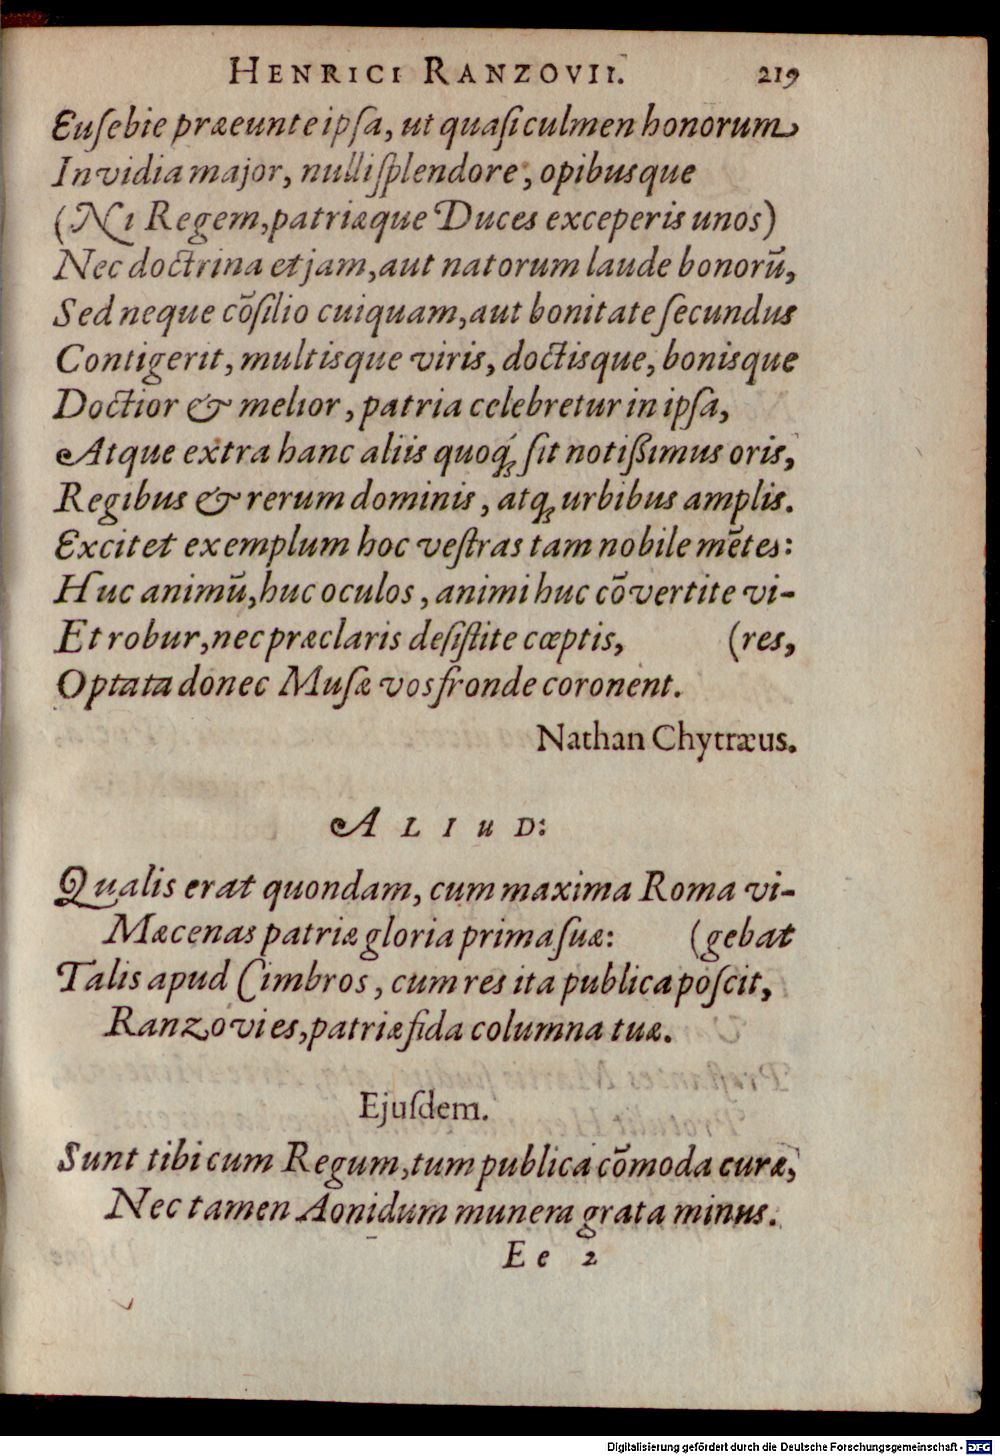 HENRICI RANZOVII. 219
Euſebie præeunte ipſa, ut quaſi culmen honorum
Invidia major, nulli ſplendore, opibusque
(Ni Regem, patriæque Duces exceperis unos)
Nec doctrina etjam, aut natorum laude bonorū,
Sed neque cõſilio cuiquam, aut bonitate ſecundus
Contigerit, multisque viris, doctisque, bonisque
Doctior & melior, patria celebretur in ipſa,
Atque extra hanc aliis quoq́ꝫ ſit notiſsimus oris,
Regibus & rerum dominis, atqꝫ urbibus amplis.
Excitet exemplum hoc veſtras tam nobile mētes:
Huc animū, huc oculos, animi huc cõvertite vi-
Et robur, nec præclaris deſiſtite cœptis, (res,
Optata donec Muſæ vos fronde coronent.
Nathan Chytræus.
ALIUD:
Qualis erat quondam, cum maxima Roma vi-
Mæcenas patriæ gloria prima ſuæ: (gebat
Talis apud Cimbros, cum res ita publica poſcit,
Ranzovi es, patriæ fida columna tuæ.
Ejuſdem.
Sunt tibi cum Regum, tum publica cõmoda curæ,
Nec tamen Aonidum munera grata minus.
Ee 2
Digitalisierung gefördert durch die Deutsche Forschungsgemeinschaft - DFG